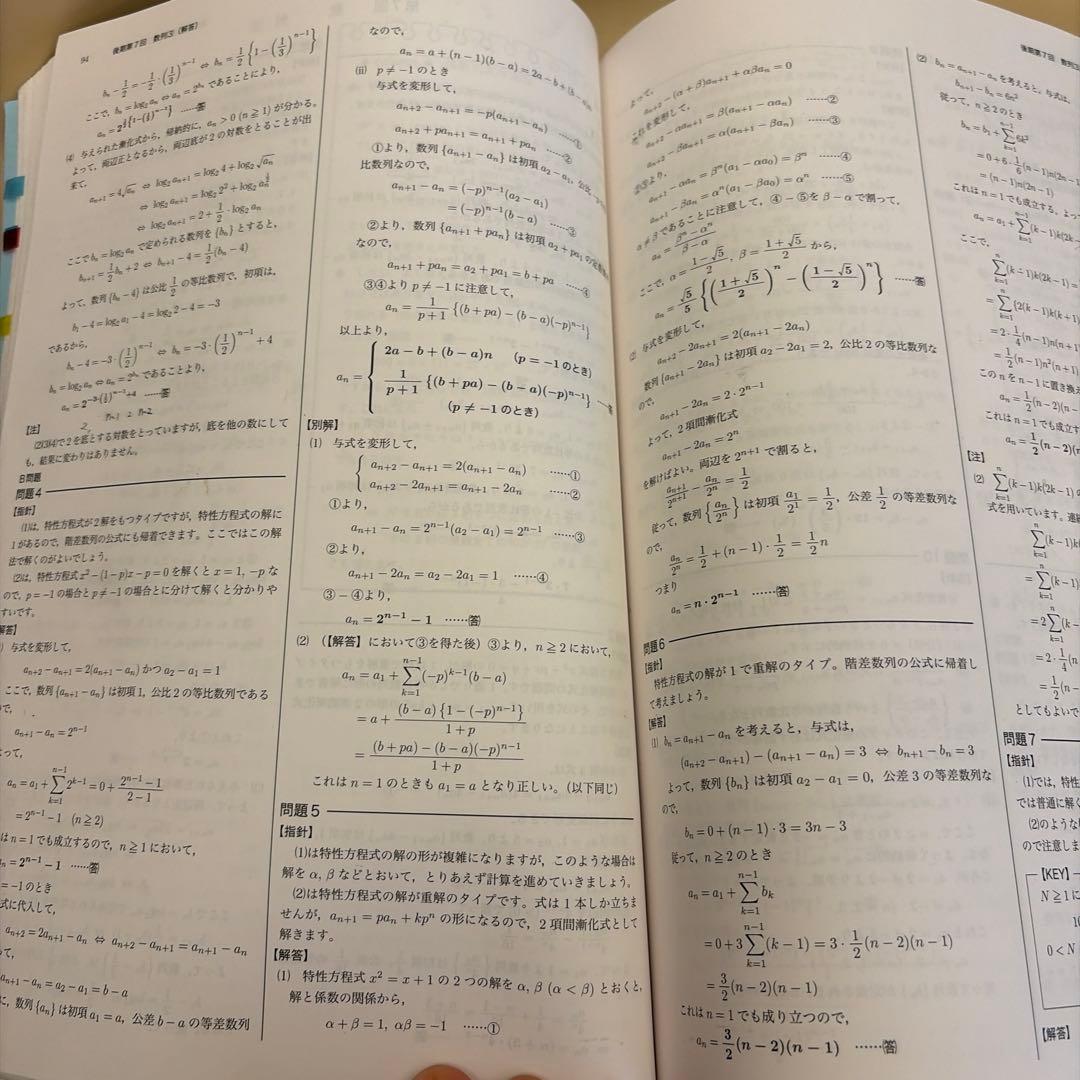 94
後期第7回 数列③(解答)
b_n − 1/2 = −1/2・(1/3)^{n−1} ⇔ b_n = 1/2{1 − (1/3)^{n−1}}
ここで, b_n = log₂a_n ⇔ a_n = 2^{b_n} であることにより,
a_n = 2^{1/2{1−(1/3)^{n−1}}} ……答
(4) 与えられた漸化式から, 帰納的に, a_n > 0 (n ≧ 1) が分かる。
よって, 両辺正となるから, 両辺底が2の対数をとることが出
来て,
a_{n+1} = 4√a_n ⇔ log₂a_{n+1} = log₂4 + log₂√a_n
⇔ log₂a_{n+1} = log₂2² + log₂a_n^{1/2}
⇔ log₂a_{n+1} = 2 + 1/2・log₂a_n
ここで b_n = log₂a_n で定められる数列を {b_n} とすると,
b_{n+1} = 1/2 b_n + 2 ⇔ b_{n+1} − 4 = 1/2(b_n − 4)
よって, 数列 {b_n − 4} は公比 1/2 の等比数列で, 初項は,
b₁ − 4 = log₂a₁ − 4 = log₂2 − 4 = −3
であるから,
b_n − 4 = −3・(1/2)^{n−1} ⇔ b_n = −3・(1/2)^{n−1} + 4
b_n = log₂a_n ⇔ a_n = 2^{b_n} であることより,
a_n = 2^{−3・(1/2)^{n−1}+4} ……答
【注】
(2)(3)(4)で2を底とする対数をとっていますが, 底を他の数にして
も, 結果に変わりはありません。
B問題
問題4
【指針】
(1)は, 特性方程式が2解をもつタイプですが, 特性方程式の解に
1があるので, 階差数列の公式にも帰着できます。ここではこの解
法で解くのがよいでしょう。
(2)は, 特性方程式 x² − (1 − p)x − p = 0 を解くと x = 1, −p な
ので, p = −1 の場合と p ≠ −1 の場合とに分けて解くと分かりや
すいです。
解答】
) 与式を変形して,
a_{n+2} − a_{n+1} = 2(a_{n+1} − a_n) かつ a₂ − a₁ = 1
ここで, 数列 {a_{n+1} − a_n} は初項1, 公比2の等比数列である
ので,
a_{n+1} − a_n = 2^{n−1}
って,
a_n = a₁ + Σ_{k=1}^{n−1} 2^{k−1} = 0 + (2^{n−1} − 1)/(2 − 1)
= 2^{n−1} − 1 (n ≧ 2)
は n = 1 でも成立するので, n ≧ 1 において,
n = 2^{n−1} − 1 ……答
= −1 のとき
式に代入して,
a_{n+2} = 2a_{n+1} − a_n ⇔ a_{n+2} − a_{n+1} = a_{n+1} − a_n
って,
a_{n+1} − a_n = a₂ − a₁ = b − a
に, 数列 {a_n} は初項 a₁ = a, 公差 b − a の等差数列
なので,
a_n = a + (n − 1)(b − a) = 2a − b + (b − a)n
(ii) p ≠ −1 のとき
与式を変形して,
a_{n+2} − a_{n+1} = −p(a_{n+1} − a_n) ……①
a_{n+2} + pa_{n+1} = a_{n+1} + pa_n ……②
①より, 数列 {a_{n+1} − a_n} は初項 a₂ − a₁, 公比
比数列なので,
a_{n+1} − a_n = (−p)^{n−1}(a₂ − a₁)
= (−p)^{n−1}(b − a) ……③
②より, 数列 {a_{n+1} + pa_n} は初項 a₂ + pa₁ の
なので,
a_{n+1} + pa_n = a₂ + pa₁ = b + pa ……④
③④より p ≠ −1 に注意して,
a_n = 1/(p+1) {(b + pa) − (b − a)(−p)^{n−1}}
以上より,
a_n = { 2a − b + (b − a)n (p = −1 のとき)
1/(p+1) {(b + pa) − (b − a)(−p)^{n−1}}
(p ≠ −1 のとき) …答
【別解】
(1) 与式を変形して,
{ a_{n+2} − a_{n+1} = 2(a_{n+1} − a_n) ……①
a_{n+2} − 2a_{n+1} = a_{n+1} − 2a_n ……②
①より,
a_{n+1} − a_n = 2^{n−1}(a₂ − a₁) = 2^{n−1} ……③
②より,
a_{n+1} − 2a_n = a₂ − 2a₁ = 1 ……④
③ − ④より,
a_n = 2^{n−1} − 1 ……答
(2) (【解答】において③を得た後) ③より, n ≧ 2 において,
a_n = a₁ + Σ_{k=1}^{n−1} (−p)^{k−1}(b − a)
= a + (b − a){1 − (−p)^{n−1}}/(1 + p)
= {(b + pa) − (b − a)(−p)^{n−1}}/(1 + p)
これは n = 1 のときも a₁ = a となり正しい。(以下同じ)
問題5
【指針】
(1)は特性方程式の解の形が複雑になりますが, このような場合は
解を α, β などとおいて, とりあえず計算を進めていきましょう。
(2)は特性方程式の解が重解のタイプです。式は1本しか立ちま
せんが, a_{n+1} = pa_n + kpⁿ の形になるので, 2項間漸化式として
解きます。
【解答】
(1) 特性方程式 x² = x + 1 の2つの解を α, β (α < β) とおくと,
解と係数の関係から,
α + β = 1, αβ = −1 ……①
よって,
a_{n+2} − (α + β)a_{n+1} + αβa_n = 0
これを変形して,
a_{n+2} − αa_{n+1} = β(a_{n+1} − αa_n) ……②
a_{n+2} − βa_{n+1} = α(a_{n+1} − βa_n) ……③
②③より,
a_{n+1} − αa_n = βⁿ(a₁ − αa₀) = βⁿ ……④
a_{n+1} − βa_n = αⁿ(a₁ − βa₀) = αⁿ ……⑤
α ≠ β であることに注意して, ④ − ⑤を β − α で割って,
a_n = (βⁿ − αⁿ)/(β − α)
ここで, α = (1 − √5)/2, β = (1 + √5)/2 から,
a_n = √5/5 {((1 + √5)/2)ⁿ − ((1 − √5)/2)ⁿ} ……答
与式を変形して,
a_{n+2} − 2a_{n+1} = 2(a_{n+1} − 2a_n)
数列 {a_{n+1} − 2a_n} は初項 a₂ − 2a₁ = 2, 公比2の等比数列な
ので,
a_{n+1} − 2a_n = 2・2^{n−1}
よって, 2項間漸化式
a_{n+1} − 2a_n = 2ⁿ
を解けばよい。両辺を 2^{n+1} で割ると,
a_{n+1}/2^{n+1} − a_n/2ⁿ = 1/2
従って, 数列 {a_n/2ⁿ} は初項 a₁/2¹ = 1/2, 公差 1/2 の等差数列な
ので,
a_n/2ⁿ = 1/2 + (n − 1)・1/2 = 1/2 n
つまり
a_n = n・2^{n−1} ……答
問題6
【指針】
特性方程式の解が1で重解のタイプ。階差数列の公式に帰着し
て考えましょう。
【解答】
(1) b_n = a_{n+1} − a_n を考えると, 与式は,
(a_{n+2} − a_{n+1}) − (a_{n+1} − a_n) = 3 ⇔ b_{n+1} − b_n = 3
よって, 数列 {b_n} は初項 a₂ − a₁ = 0, 公差3の等差数列な
ので,
b_n = 0 + (n − 1)・3 = 3n − 3
従って, n ≧ 2 のとき
a_n = a₁ + Σ_{k=1}^{n−1} b_k
= 0 + 3Σ_{k=1}^{n−1} (k − 1) = 3・1/2(n − 2)(n − 1)
= 3/2(n − 2)(n − 1)
これは n = 1 でも成り立つので,
a_n = 3/2(n − 2)(n − 1) ……答
後期第7回 数列③
(2) b_n = a_{n+1} − a_n を考えると, 与式は,
b_{n+1} − b_n = 6n²
従って, n ≧ 2 のとき
b_n = b₁ + Σ_{k=1}^{n−1} 6k²
= 0 + 6・1/6(n − 1)n(2n − 1)
= (n − 1)n(2n − 1)
これは n = 1 でも成立する。よっ
a_n = a₁ + Σ_{k=1}^{n−1} (k − 1)k(2k
ここで,
Σ_{k=1}^{n} (k − 1)k(2k − 1) =
= Σ_{k=1}^{n} {2(k − 1)k(k +
= 2・1/4(n − 1)n(n +
= 1/2(n − 1)n²(n + 1)
この n を n − 1 に置き換え
a_n = 1/2(n − 2)(n −
これは n = 1 でも成立す
a_n = 1/2(n − 2)(
【注】
(2) Σ_{k=1}^{n} (k − 1)k(2k − 1) の
式を用いています。連続
Σ_{k=1}^{n} (k − 1)k(
= Σ_{k=1}^{n} (k − 1)
= 2Σ_{k=1}^{n} (k −
= 2・1/4(n
= 1/2(n −
としてもよいで
問題7
【指針】
(1)では, 特性
では普通に解く
(2)のような
ので注意しま
【KEY】
N ≧ 1 に
10
0 < N
【解答】